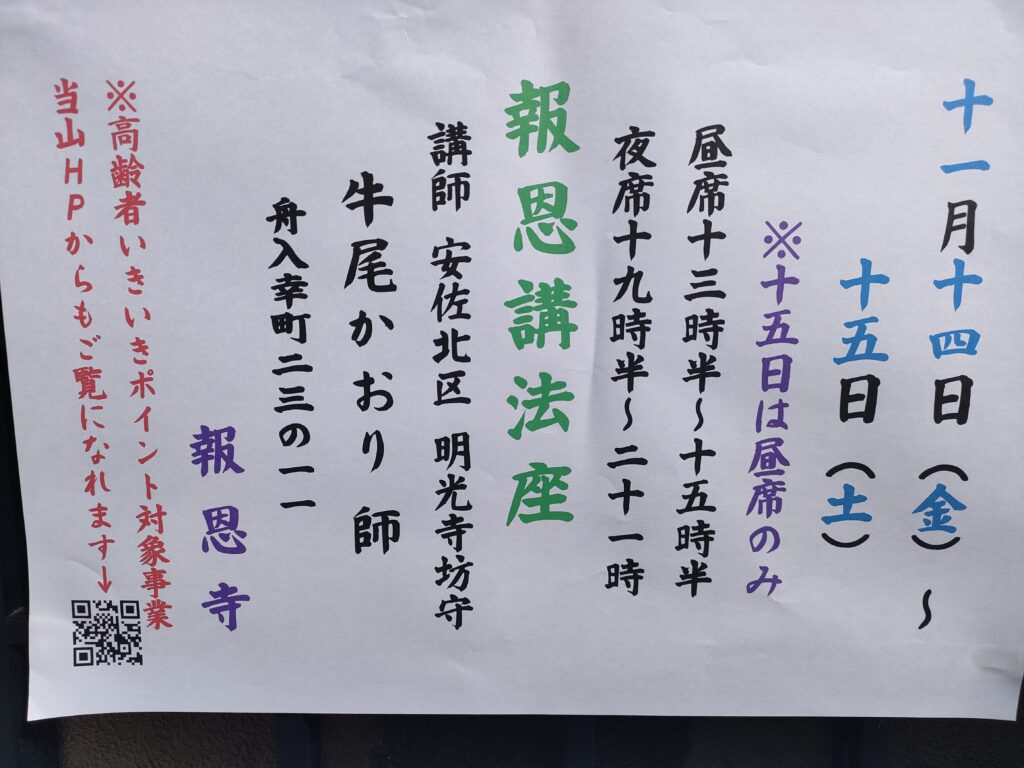 十一月十四日（金）～
十五日（土）
※十五日は昼席のみ
昼席十三時半～十五時半
夜席十九時半～二十一時
報恩講法座
講師 安佐北区 明光寺坊守
牛尾かおり 師
舟入幸町二三の一一
報恩寺
※高齢者いきいきポイント対象事業
当山HPからもご覧になれます→